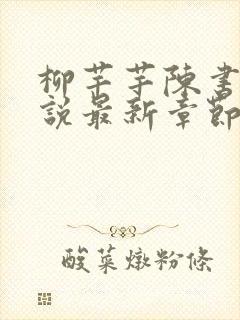 柳芊芊陳書
說最新章節
酸菜燉粉條